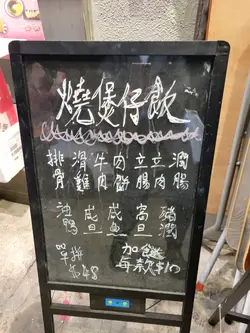 燒煲仔飯
排骨
滑雞
牛肉
肉餅
立腸
立肉
潤腸
油鴨
咸旦
咸魚
窩旦
豬潤
單拼
$48
加餸
每款$10